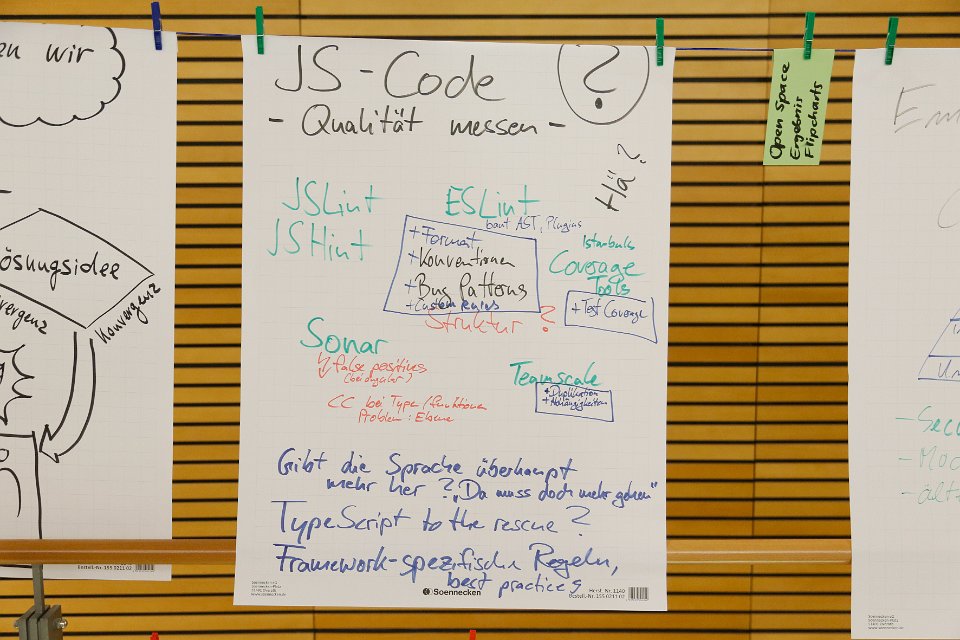 en wir
ösungsidee
vergenz
Konvergenz
Bestell-Nr. 155 0211 02
JS-Code
?
- Qualität messen -
Hä?
JSLint
JSHint
ESLint
baut AST, Plugins
+Format
+Konventionen
+Bug Patterns
+Custom
Struktur ?
Istanbuls
Coverage
Tools
+Test Coverage
Sonar
false positives
(bei angular)
CC bei Type/funktionen
Problem: Ebene
Teamscale
+Duplikation
+Abhängigkeiten
Gibt die Sprache überhaupt
mehr her? „Da muss doch mehr gehen"
TypeScript to the rescue?
Framework-spezifische Regeln,
best practices
Soennecken
Herst. Nr. 1140
Bestell-Nr. 155 0211 02
Open Space
Ergebnis
Flipcharts
Em
Un
- Secu
- Moc
- ält